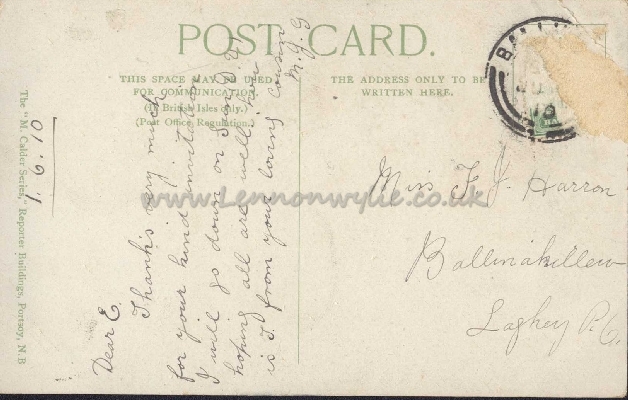 POST CARD.
THIS SPACE MAY BE USED
FOR COMMUNICATION.
(In British Isles only.)
(Post Office Regulation.)
THE ADDRESS ONLY TO BE
WRITTEN HERE.
The "M. Calder Series," Reporter Buildings, Portsoy, N.B
1.6.10
Dear E.
Thanks very much
for your kind invitation
I will go down on Sun. D.V.
hoping all are well how
is J. from your loving cousin
M.J.G
Miss F. J. Harron
Ballinakillew
Laghey P.O.
www.Lennonwylie.co.uk